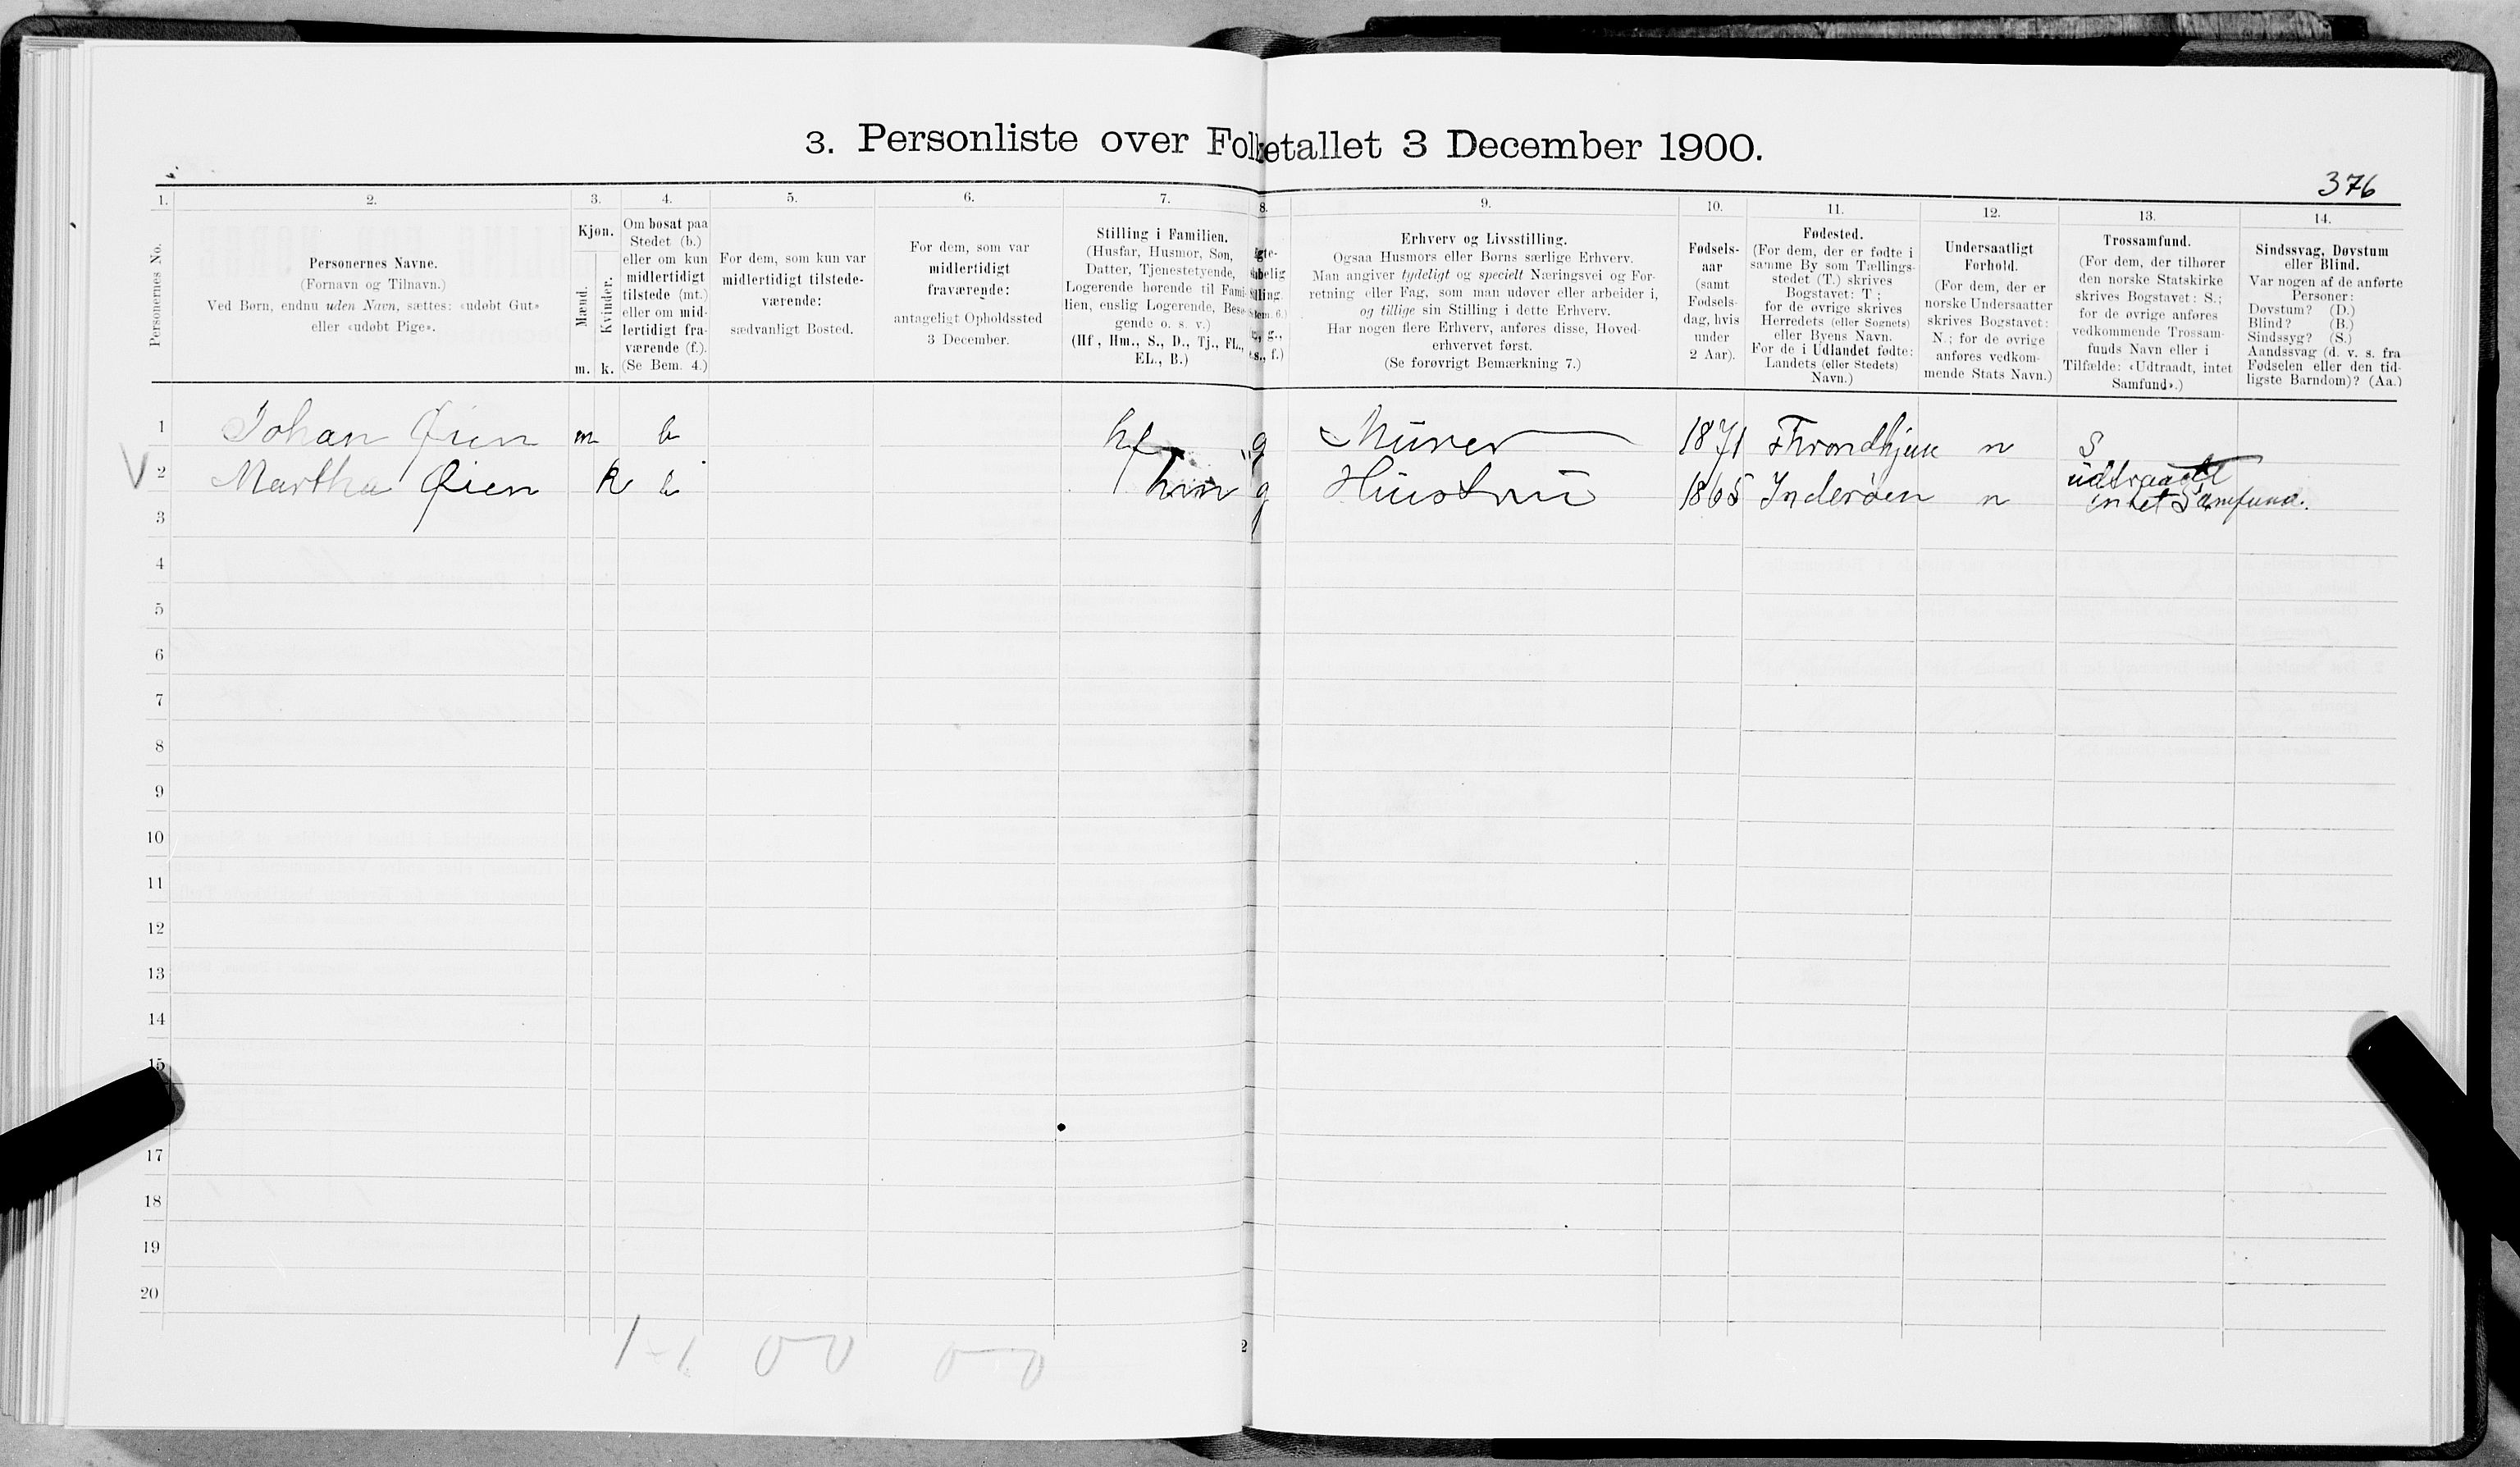 3. Personliste over Folketallet 3 December 1900.
376
1.
2.
3.
4.
5.
6.
7.
8.
9.
10.
11.
12.
13.
14.
Personernes No.
Personernes Navne.
(Fornavn og Tilnavn.)
Ved Børn, endnu uden Navn, sættes: «udøbt Gut»
eller «udøbt Pige».
Kjøn.
Mænd.
Kvinder.
m. k.
Om bosat paa
Stedet (b.)
eller om kun
midlertidigt
tilstede (mt.)
eller om mid-
lertidigt fra-
værende (f.).
(Se Bem. 4.)
For dem, som kun var
midlertidigt tilstede-
værende:
sædvanligt Bosted.
For dem, som var
midlertidigt
fraværende:
antageligt Opholdssted
3 December.
Stilling i Familien.
(Husfar, Husmor, Søn,
Datter, Tjenestetyende,
Logerende hørende til Fami-
lien, enslig Logerende, Besø-
gende o. s. v.)
(Hf., Hm., S., D., Tj., FL.,
EL., B.)
Erhverv og Livsstilling.
Ogsaa Husmors eller Børns særlige Erhverv.
Man angiver tydeligt og specielt Næringsvei og For-
retning eller Fag, som man udøver eller arbeider i,
og tillige sin Stilling i dette Erhverv.
Har nogen flere Erhverv, anføres disse, Hoved-
erhvervet først.
(Se forøvrigt Bemærkning 7.)
Fødsels-
aar
(samt
Fødsels-
dag, hvis
under
2 Aar).
Fødested.
(For dem, der er fødte i
samme By som Tællings-
stedet (T.) skrives
Bogstavet: T;
for de øvrige skrives
Herredets (eller Sognets)
eller Byens Navn.
For de i Udlandet fødte:
Landets (eller Stedets)
Navn.)
Undersaatligt
Forhold.
(For dem, der er
norske Undersaatter
skrives Bogstavet:
N.; for de øvrige
anføres vedkom-
mende Stats Navn.)
Trossamfund.
(For dem, der tilhører
den norske Statskirke
skrives Bogstavet: S.;
for de øvrige anføres
vedkommende Trossam-
funds Navn eller i
Tilfælde: «Udtraadt, intet
Samfund».)
Sindssvag, Døvstum
eller Blind.
Var nogen af de anførte
Personer:
Døvstum? (D.)
Blind? (B.)
Sindssyg? (S.)
Aandssvag (d. v. s. fra
Fødselen eller den tid-
ligste Barndom)? (Aa.)
1 Johan Øien m b hf g Murer 1871 Throndhjem n S
V 2 Martha Øien k b hm g Hustru 1865 Inderøen n udtraadt
intet Samfund.
3
4
5
6
7
8
9
10
11
12
13
14
15
17
18
19
20
1-1 0-0 0-0
2